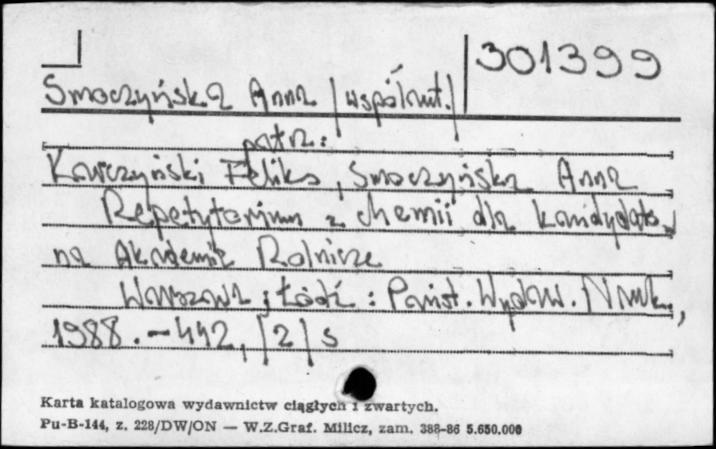 301399
Smoczyńska Anna /współaut./
patrz:
Karczyński Feliks, Smoczyńska Anna
Repetytorium z chemii dla kandydatów
na Akademie Rolnicze
Warszawa ; Łódź : Państ. Wydaw. Nauk.,
1988. – 442, /2/ s
Karta katalogowa wydawnictw ciągłych i zwartych.
Pu-B-144, z. 228/DW/ON — W.Z.Graf. Milicz, zam. 388-86 5.650.000